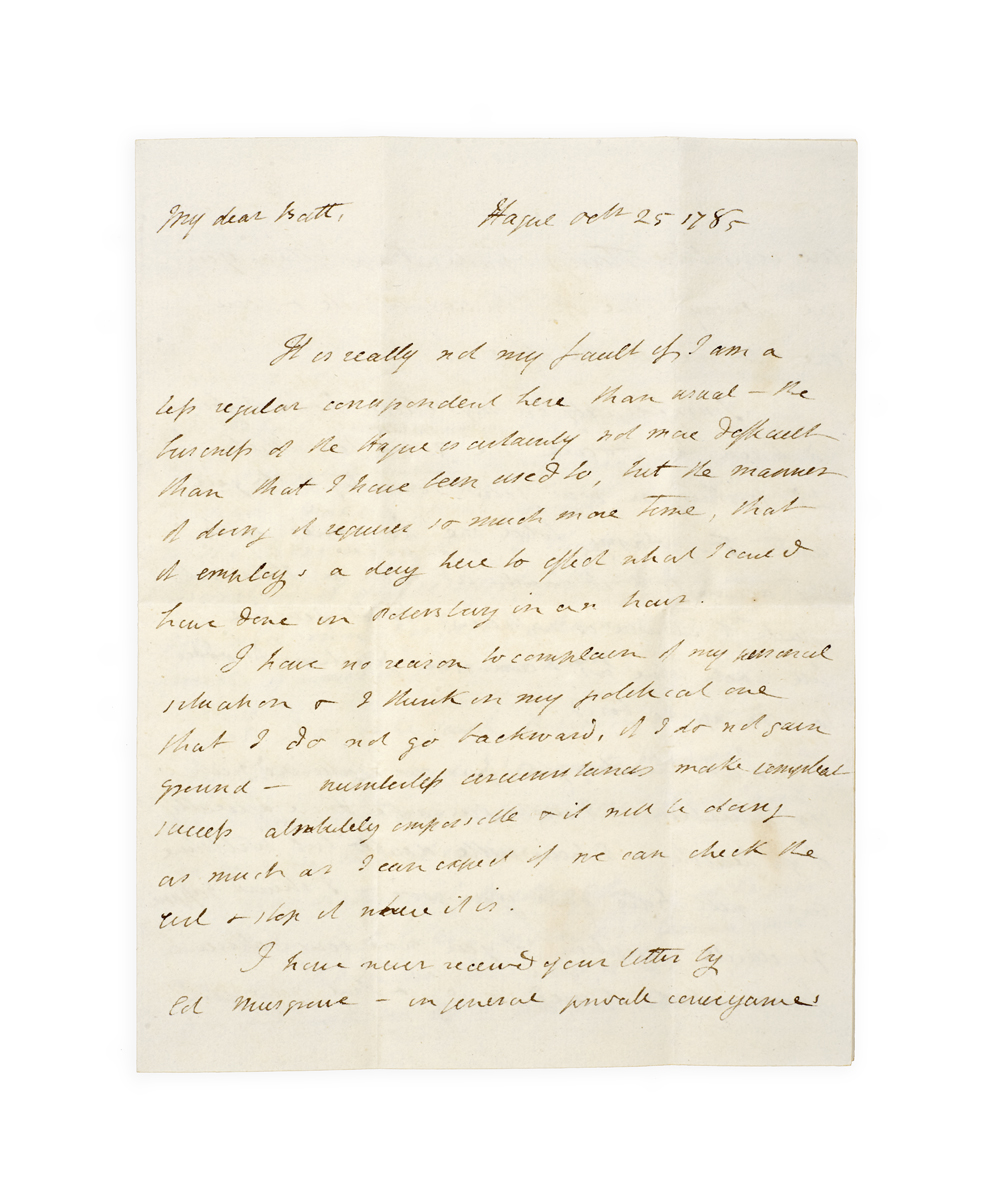 My dear Batt, Hague Octr 25 1785
It is really not my fault if I am a
less regular correspondent here than usual – the
business of the Hague is certainly not more difficult
than that I have been used to, but the manner
of doing it requires so much more time, that
it employs a day here to effect what I could
have done in Petersburg in an hour.
I have no reason to complain of my personal
situation & I think in my political one
that I do not go backward, if I do not gain
ground – numberless circumstances make compleat
success absolutely impossible & it will be doing
as much as I can expect if we can check the
evil & stop it where it is.
I have never received your letter by
Col Musgrove – in general private conveyances